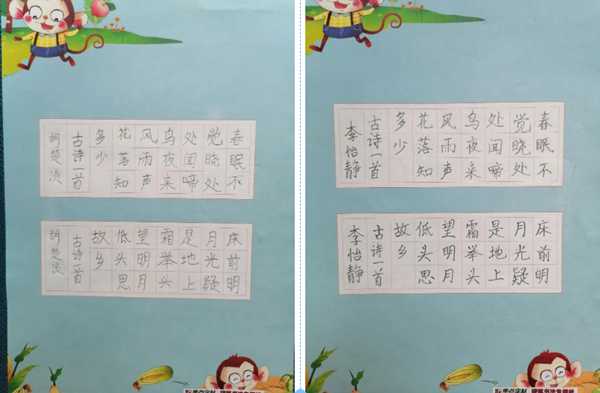 春眠不
觉晓处
处闻啼
鸟夜来
风雨声
花落知
多少
古诗一首
床前明
月光疑
是地上
霜举头
望明月
低头思
故乡
古诗一首
春眠不
觉晓处
处闻啼
鸟夜来
风雨声
花落知
多少
古诗一首
李怡静
床前明
月光疑
是地上
霜举头
望明月
低头思
故乡
古诗一首
李怡静